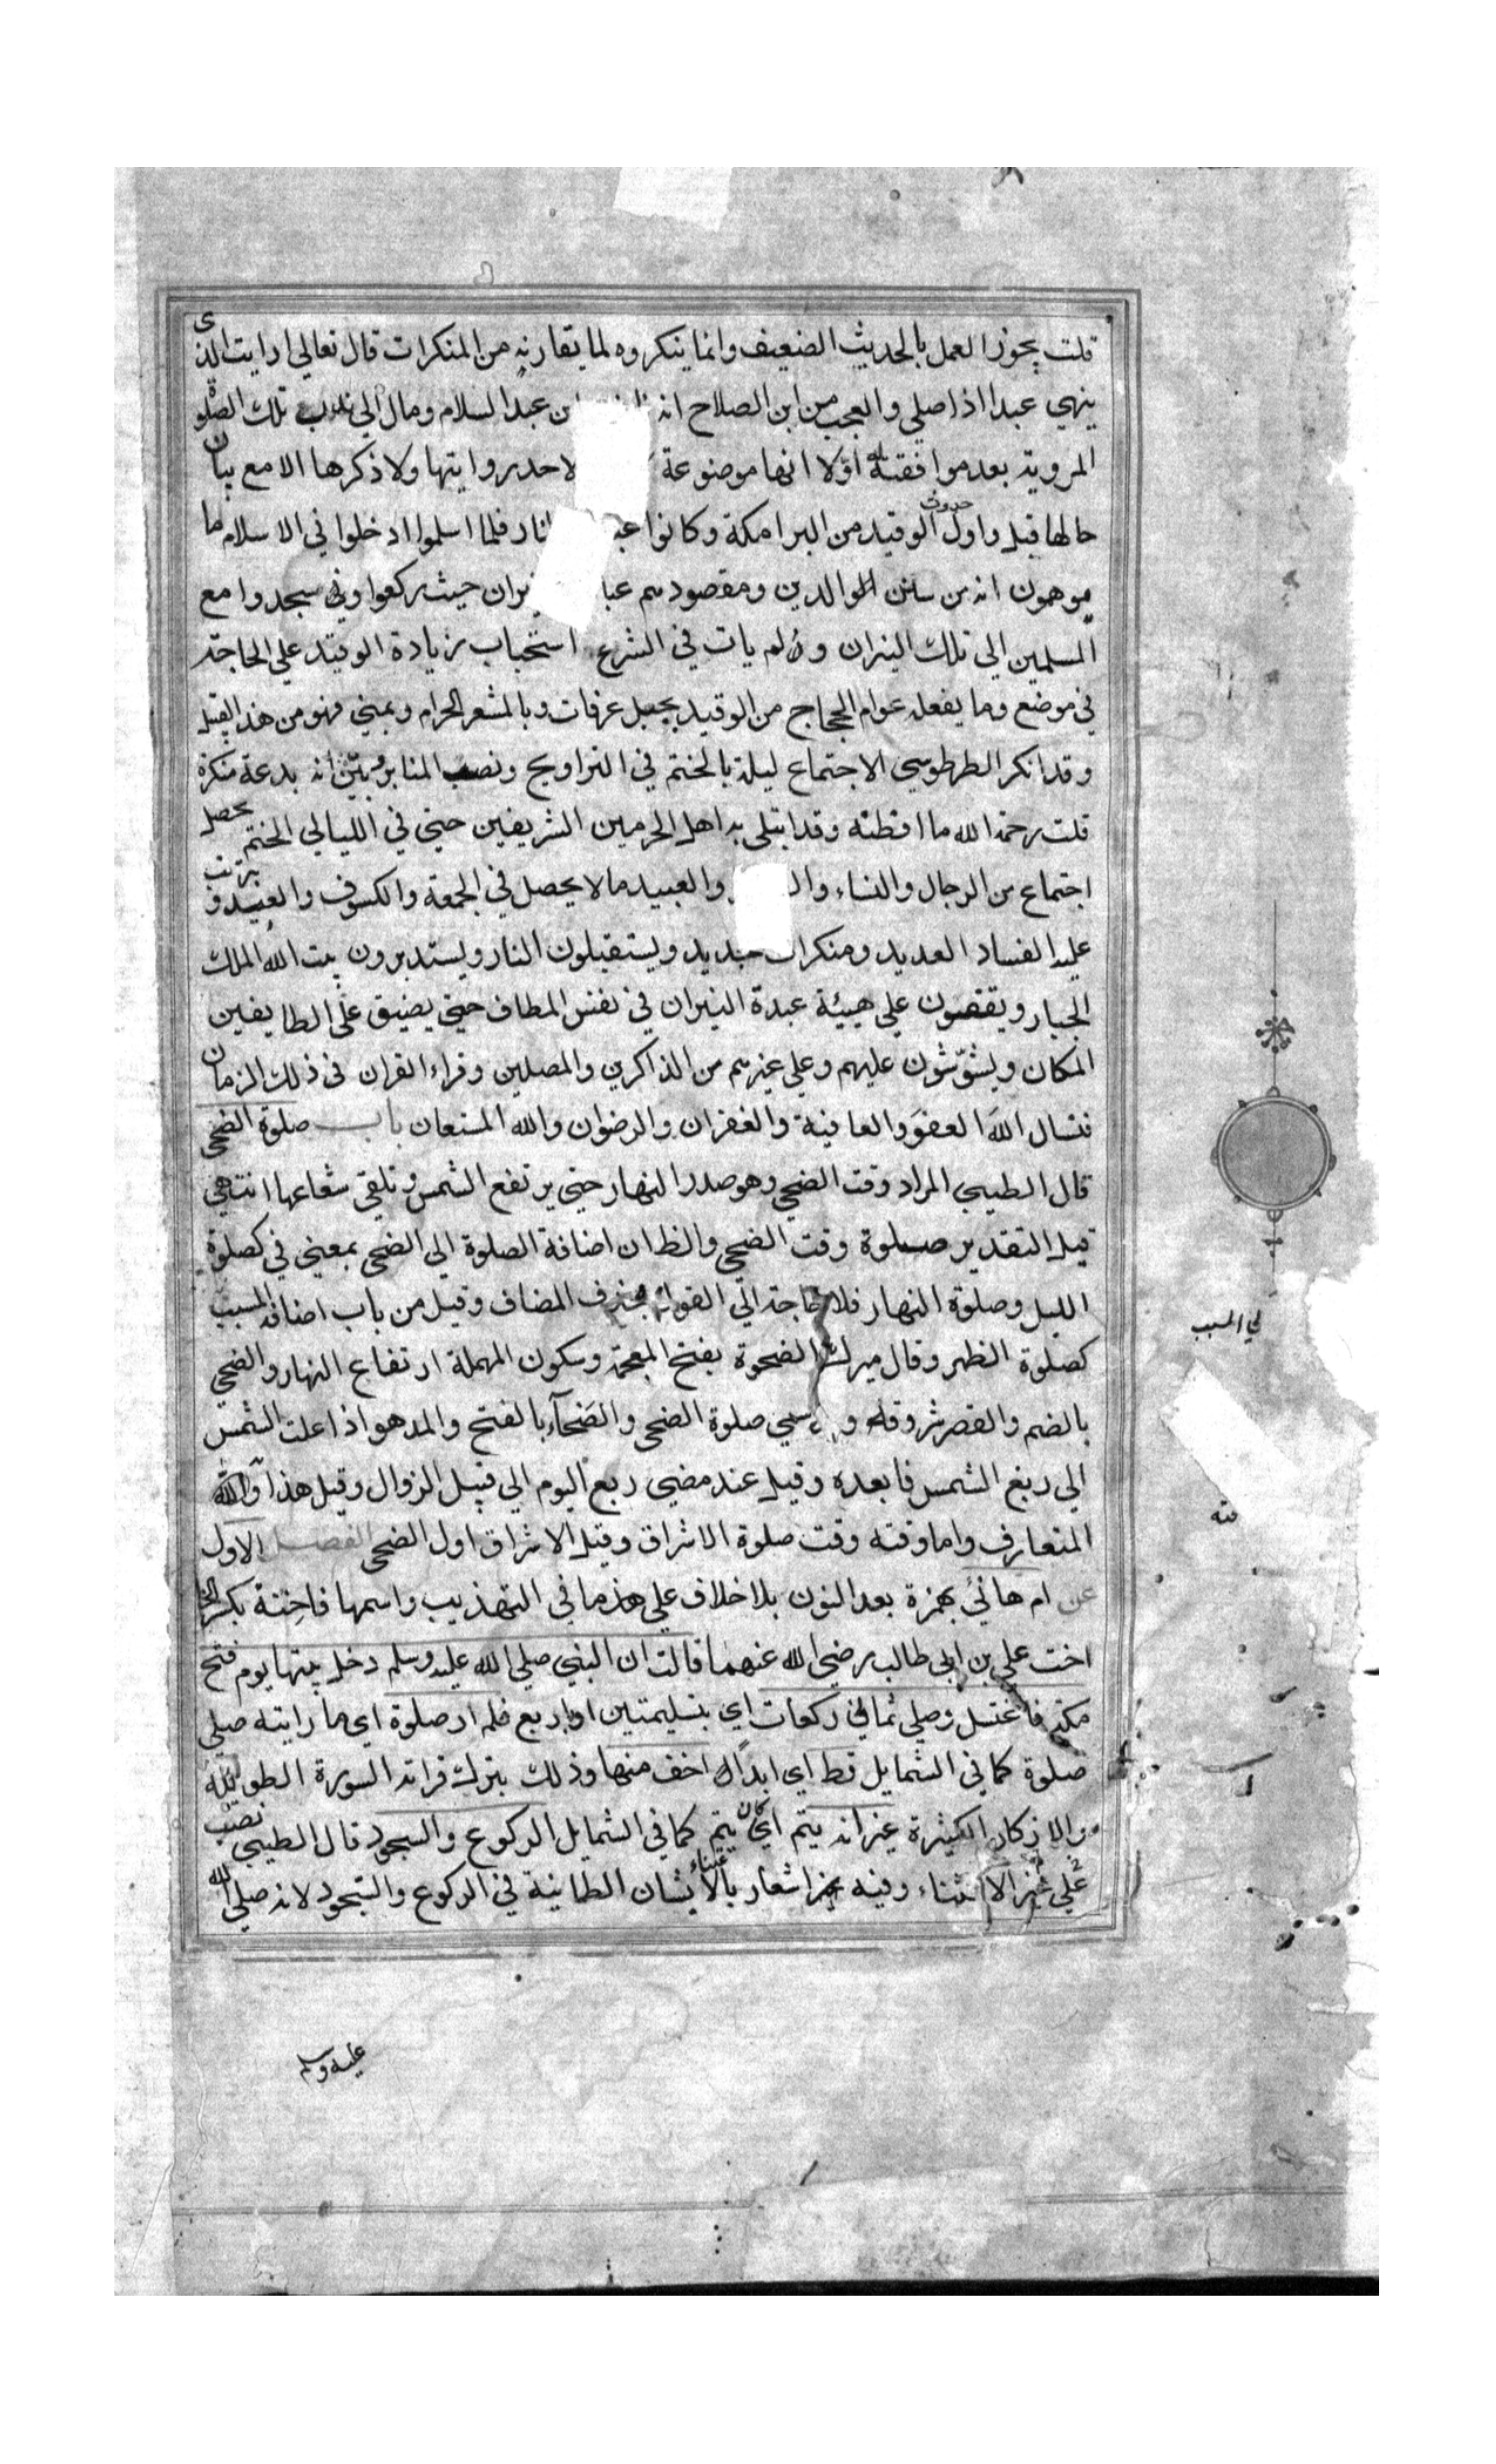 قلت يجوز العمل بالحديث الضعيف وانما ينكروه لما يقارنه من المنكرات قال تعالي ارايت الذي
ينهي عبدا اذا صلي والعجب من ابن الصلاح انه ابن عبد السلام ومال الي ندب تلك الصلوة
المروية بعد موافقته له اولا انها موضوعة لاحد روايتها ولا ذكرها الا مع بيان
حالها قيل واول حدوث الوقيد من البرامكة وكانوا النار فلما اسلموا ادخلوا في الاسلام ما
يموهمون انه من سنن الدين ومقصودهم نيران حيث ركعوا وسجدوا مع
المسلمين الي تلك النيران ولم يات في الشرع استحباب زيادة الوقيد علي الحاجة
في موضع وما يفعله عوام الحجاج من الوقيد بجبل عرفات وبالمشعر الحرام وبمني فهو من هذا القبيل
وقد انكر الطرطوسي الاجتماع ليلة بالختم في التراويح ونصب المنابر وبين انه بدعة منكرة
قلت رحمة الله ما افطنه وقد ابتلي به اهل الحرمين الشريفين حتي في الليالي الختم يحصل
اجتماع من الرجال والنساء والعبيد ما لا يحصل في الجمعة والكسوف والعيد ويترتب
عليه الفساد العديد ومنكرات جديد ويستقبلون النار ويستدبرون بيت الله الملك
الجبار ويقفون علي هيئة عبدة النيران في نفس المطاف حتي يضيق علي الطايفين
المكان ويشوشون عليهم وعلي غيرهم من الذاكرين والمصلين وقراء القران في ذلك الزمان
فنسال الله العفو والعافية والغفران والرضوان والله المستعان باب صلوة الضحي
قال الطيبي المراد وقت الضحي وهو صدر النهار حتي يرتفع الشمس وتلقي شعاعها انتهي
قيل التقدير صلوة وقت الضحي والظ ان اضافة الصلوة الي الضحي بمعني في كصلوة
الليل وصلوة النهار فلا حاجة الي القول بحذف المضاف وقيل من باب اضافة المسبب
الي السبب
كصلوة الظهر وقال ميرك الضحوة بفتح المعجمة وسكون المهملة ارتفاع النهار والضحي
بالضم والقصر شروقه وبه سمي صلوة الضحي والضحآء بالفتح والمد هو اذا علت الشمس
الي ربع الشمس فا بعده وقيل عند مضي ربع اليوم الي قبيل الزوال وقيل هذا
المتعارف واما وقته وقت صلوة الاشراق وقيل الاشراق اول الضحي الفصل الاول
عن ام هانئ بهمزة بعد النون بلا خلاف علي هذا ما في التهذيب واسمها فاختة بكسر الخا
اخت علي بن ابي طالب رضي الله عنهما قالت ان النبي صلي الله عليه وسلم دخل بيتها يوم فتح
مكة فاغتسل وصلي ثماني ركعات اي بتسليمتين او اربع فلم ار صلوة اي ما رايته صلي
صلوة كما في الشمايل قط اي ابدا اخف منها وذلك بترك قراته السورة الطويلة
والاذكار الكثيرة غير انه يتم اي كان يتم كما في الشمايل الركوع والسجود قال الطيبي نصب
علي الاستثناء وفيه اشعار بالاعتناء بشان الطمانينة في الركوع والسجود لانه صلي الله
عليه وسلم